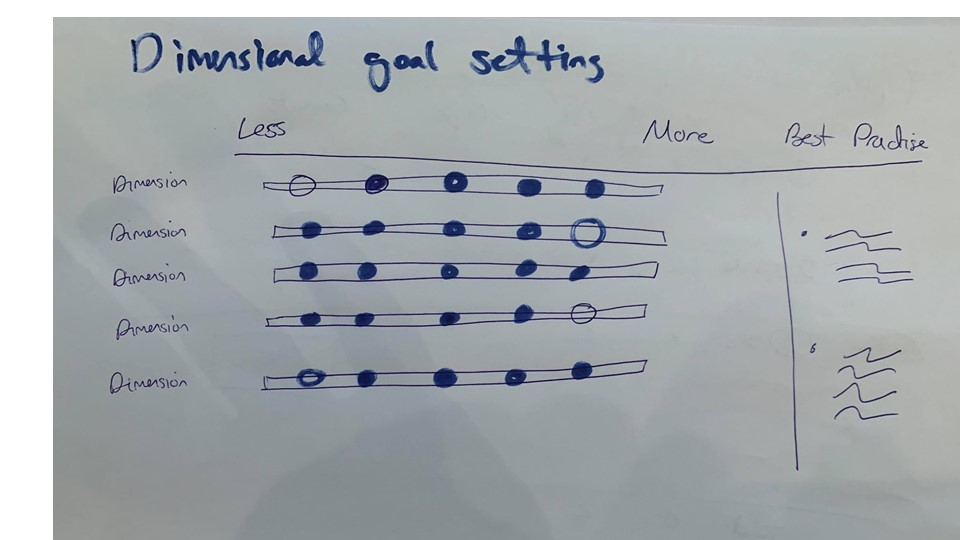 Dimensional goal setting
Less More Best Practise
Dimension
Dimension
Dimension
Dimension
Dimension